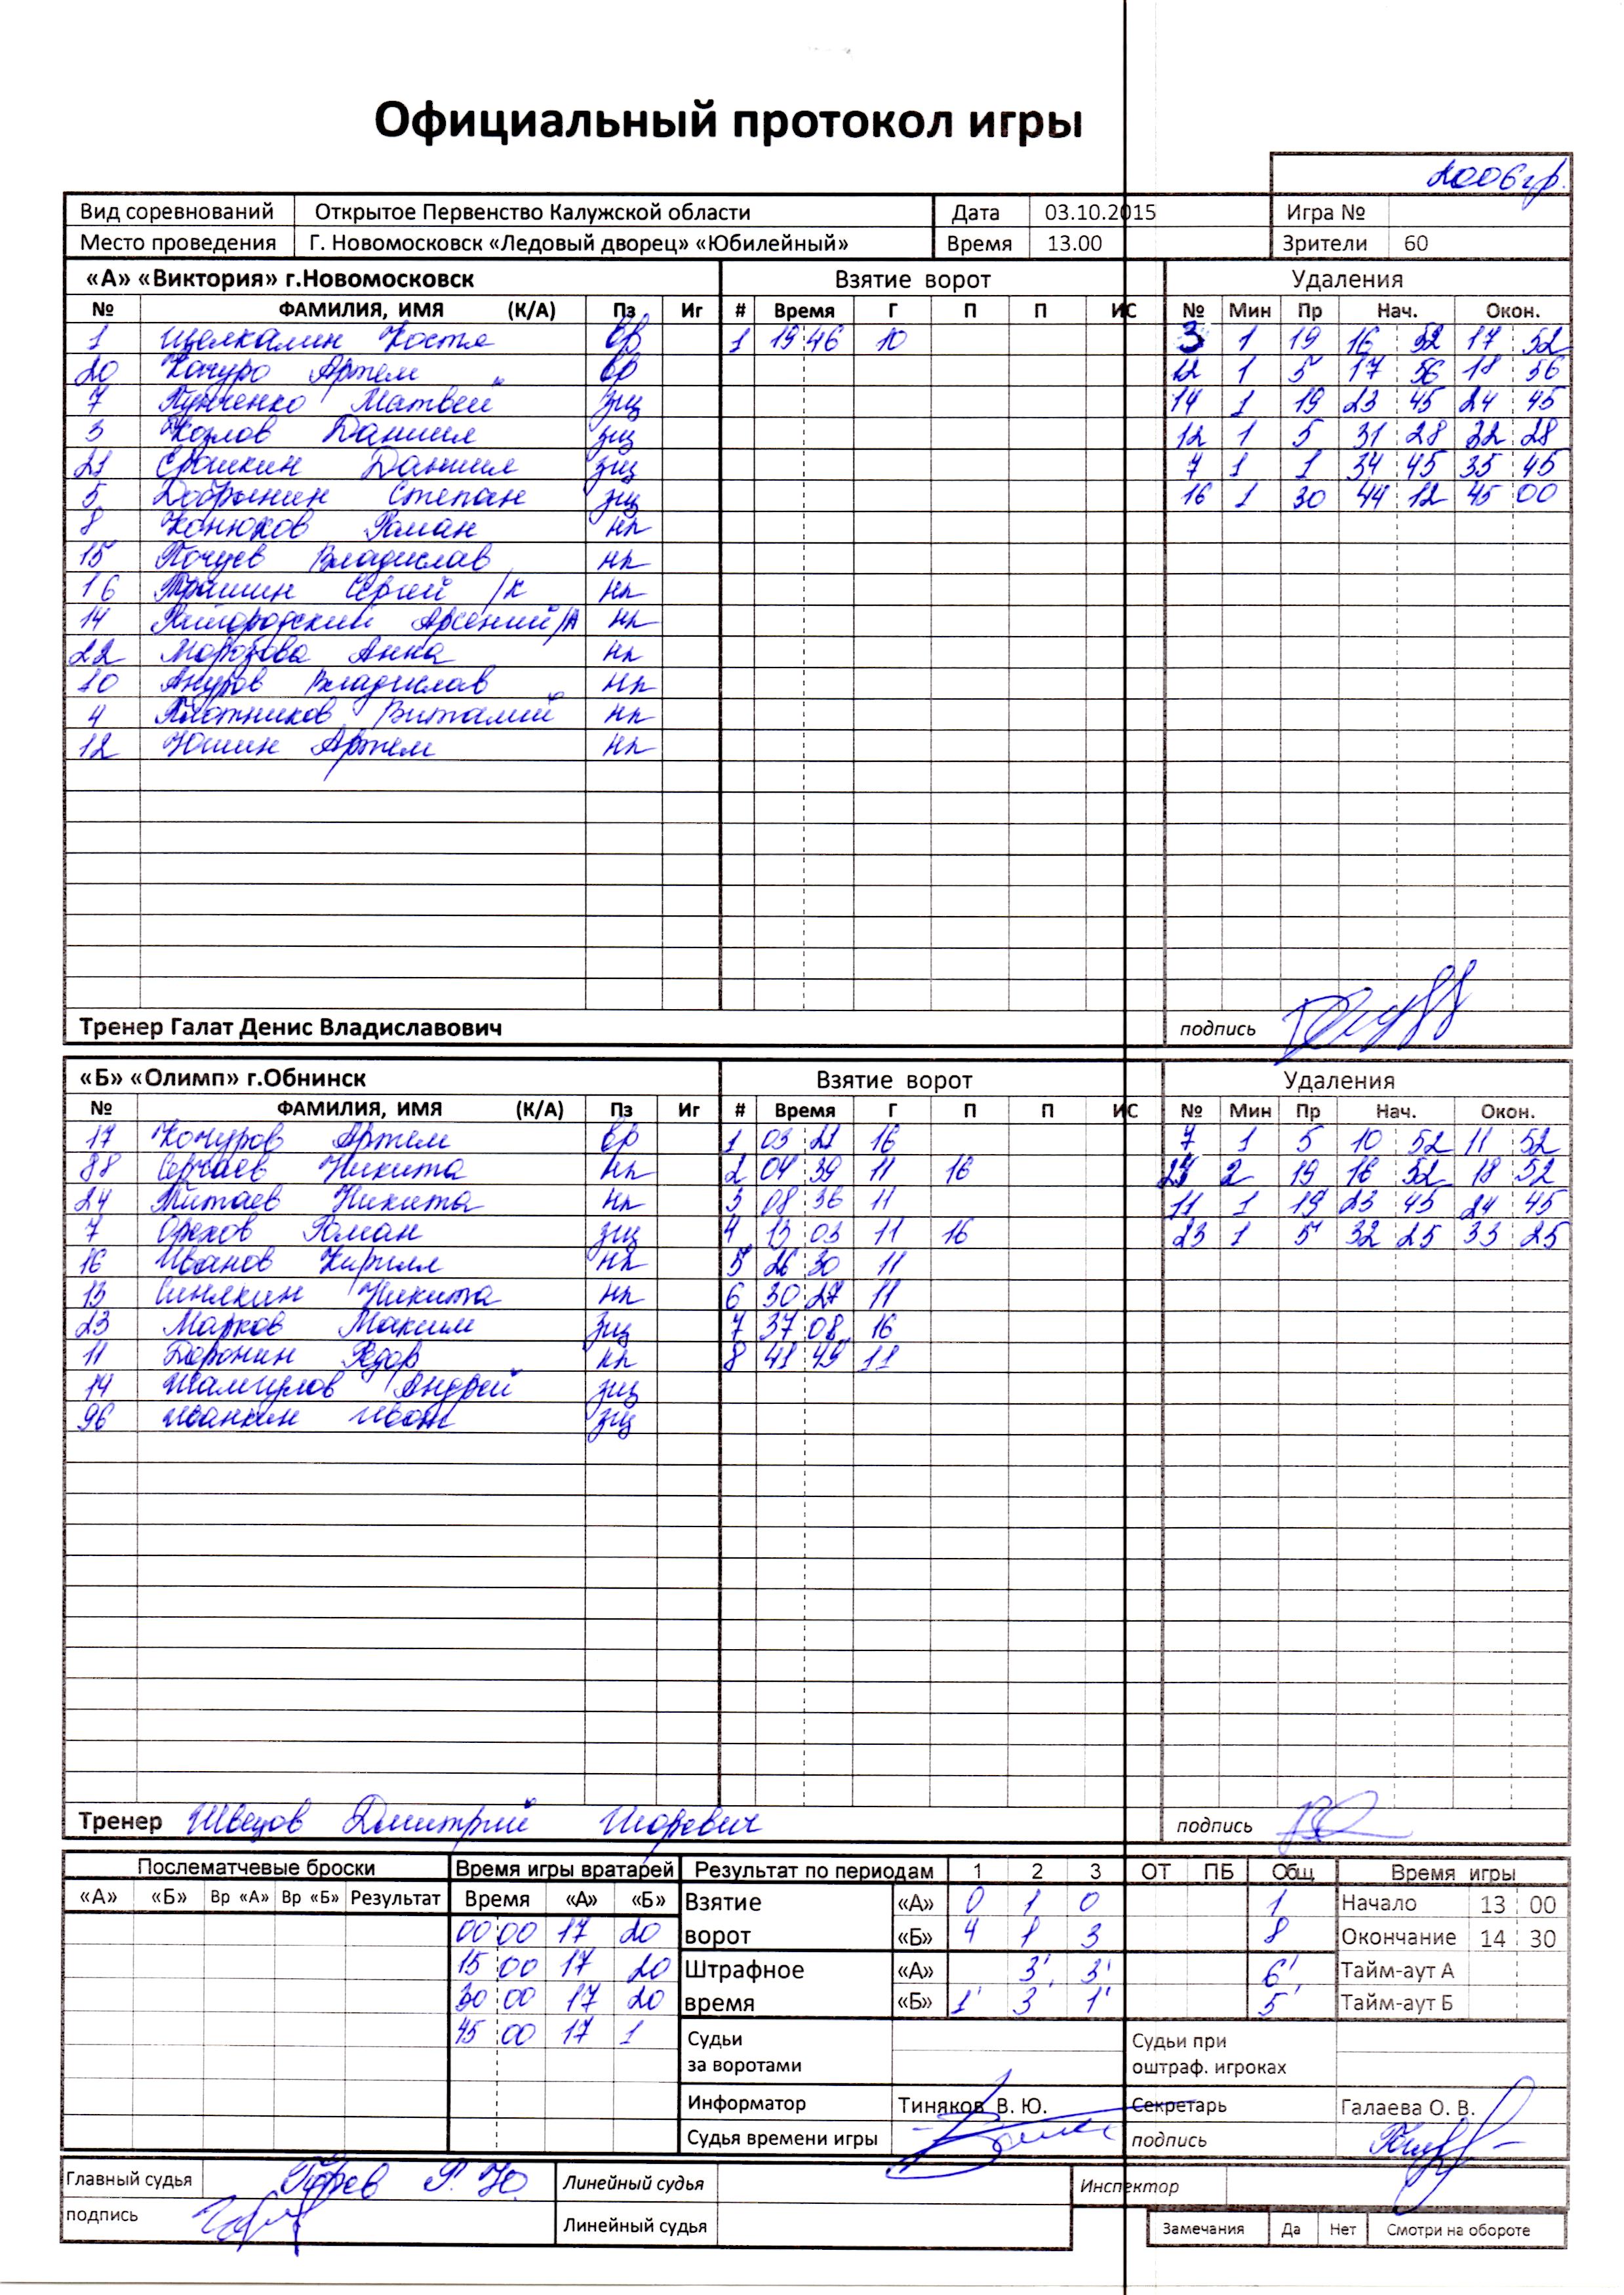 Официальный протокол игры
2006гр.
Вид соревнований Открытое Первенство Калужской области Дата 03.10.2015 Игра №
Место проведения Г. Новомосковск «Ледовый дворец» «Юбилейный» Время 13.00 Зрители 60
«А» «Виктория» г.Новомосковск Взятие ворот Удаления
№ ФАМИЛИЯ, ИМЯ (К/А) Пз Иг # Время Г П П ИС № Мин Пр Нач. Окон.
1 Щелкалин Костя вр 1 19 46 10 3 1 19 16 52 17 52
20 Качуро Артем вр 12 1 5 17 56 18 56
7 Матвей зщ 14 1 19 23 45 24 45
3 Козлов Даниил зщ 12 1 5 31 28 32 28
21 Ерошкин Даниил зщ 7 1 1 34 45 35 45
5 Добрынин Степан зщ 16 1 30 44 12 45 00
8 Конюхов Роман нп
15 Почуев Владислав нп
16 Трошин Сергей /К нп
14 Арсений/А нп
22 Морозова Анна нп
10 Ануров Владислав нп
4 Плотников Виталий нп
12 Юшин Артем нп
Тренер Галат Денис Владиславович подпись
«Б» «Олимп» г.Обнинск Взятие ворот Удаления
№ ФАМИЛИЯ, ИМЯ (К/А) Пз Иг # Время Г П П ИС № Мин Пр Нач. Окон.
17 Кочуров Артем вр 1 03 21 16 7 1 5 10 52 11 52
88 Сергаев Никита нп 2 04 39 11 16 23 2 19 16 52 18 52
24 Митаев Никита нп 3 08 36 11 11 1 19 23 45 24 45
7 Орехов Роман зщ 4 13 03 11 16 23 1 5 32 25 33 25
16 Иванов Кирилл нп 5 26 30 11
13 Синякин Никита нп 6 30 27 11
23 Марков Максим зщ 7 37 08 16
11 Доронин Федор нп 8 41 49 11
14 Шамгулов Андрей зщ
96 Иванкин зщ
Тренер Швецов Дмитрий Игоревич подпись
Послематчевые броски Время игры вратарей Результат по периодам 1 2 3 ОТ ПБ Общ Время игры
«А» «Б» Вр «А» Вр «Б» Результат Время «А» «Б» Взятие «А» 0 1 0 1 Начало 13 00
00 00 17 20 ворот «Б» 4 1 3 8 Окончание 14 30
15 00 17 20 Штрафное «А» 3' 3' 6' Тайм-аут А
30 00 17 20 время «Б» 1' 3 1' 5' Тайм-аут Б
45 00 17 1 Судьи за воротами Судьи при оштраф. игроках
Информатор Тиняков В. Ю. Секретарь Галаева О. В.
Судья времени игры подпись
Главный судья Р. Ю. Линейный судья Инспектор
подпись Линейный судья Замечания Да Нет Смотри на обороте